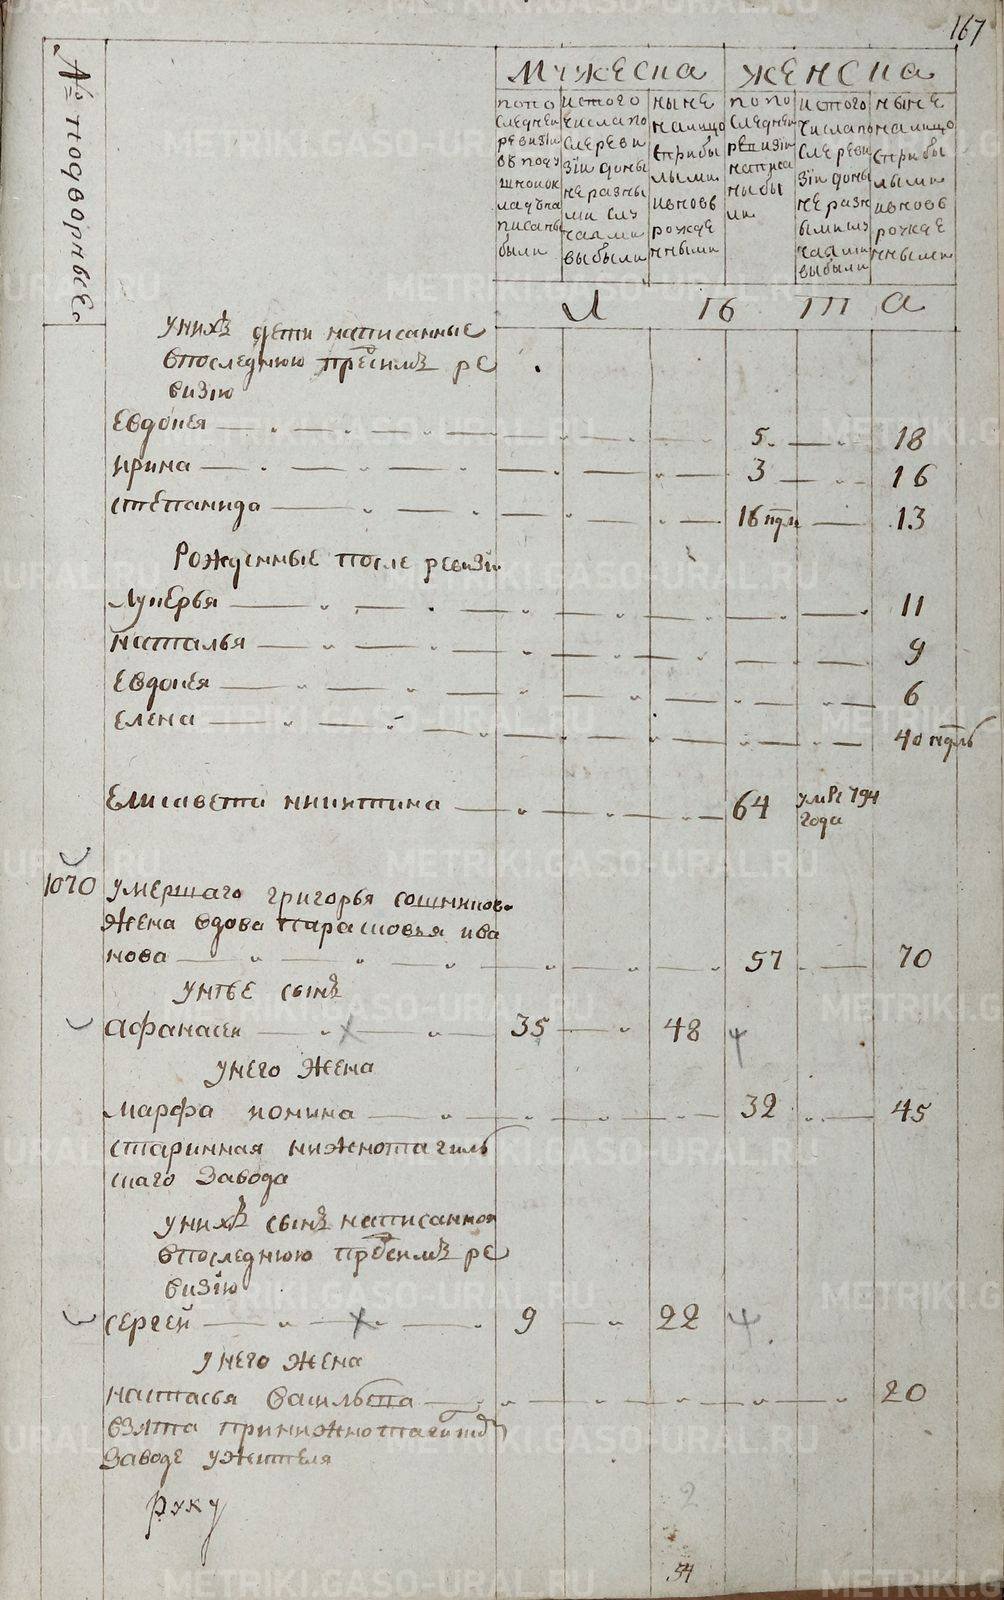 167
№ подворные
МУЖЕСКА
ЖЕНСКА
попо
следней
ревизiи
вподу
шнойок
ладъна
писаны
были
истого
числапо
слереви
зiи доны
неразны
ми слу
чаями
выбыли
ныне
налицо
сприбы
лыми
ивновь
рожде
нными
попо
следней
ревизiи
написа
ныбы
ли
истого
числапо
слереви
зiи доны
неразн
ымислу
чаями
выбыли
ныне
налицо
сприбы
лыми
ивновь
рожде
нными
Л Ѣ Т а
унихъ дети написанные
впоследнюю пресимъ ре
визiю
Евдокея 5 18
ирина 3 16
степанида 16 ндль 13
Рожденные после ревизiи
Лукерья 11
наталья 9
Евдокея 6
Елена 40 ндль
Елисавета никитина 64 умре 794
года
1070 умершаго григорья сошников
жена вдова парасковья ива
нова 57 70
унѣе сынъ
Афанасеи 35 48
унего жена
марфа кокина 32 45
старинная нижнотагиль
скаго завода
унихъ сынъ написанной
впоследнюю пресимъ ре
визiю
сергей 9 22
унего жена
настасья василѣва 20
взята принижнотагилск
заводе ужителя
руку
2
54
METRIKI.GASO-URAL.RU